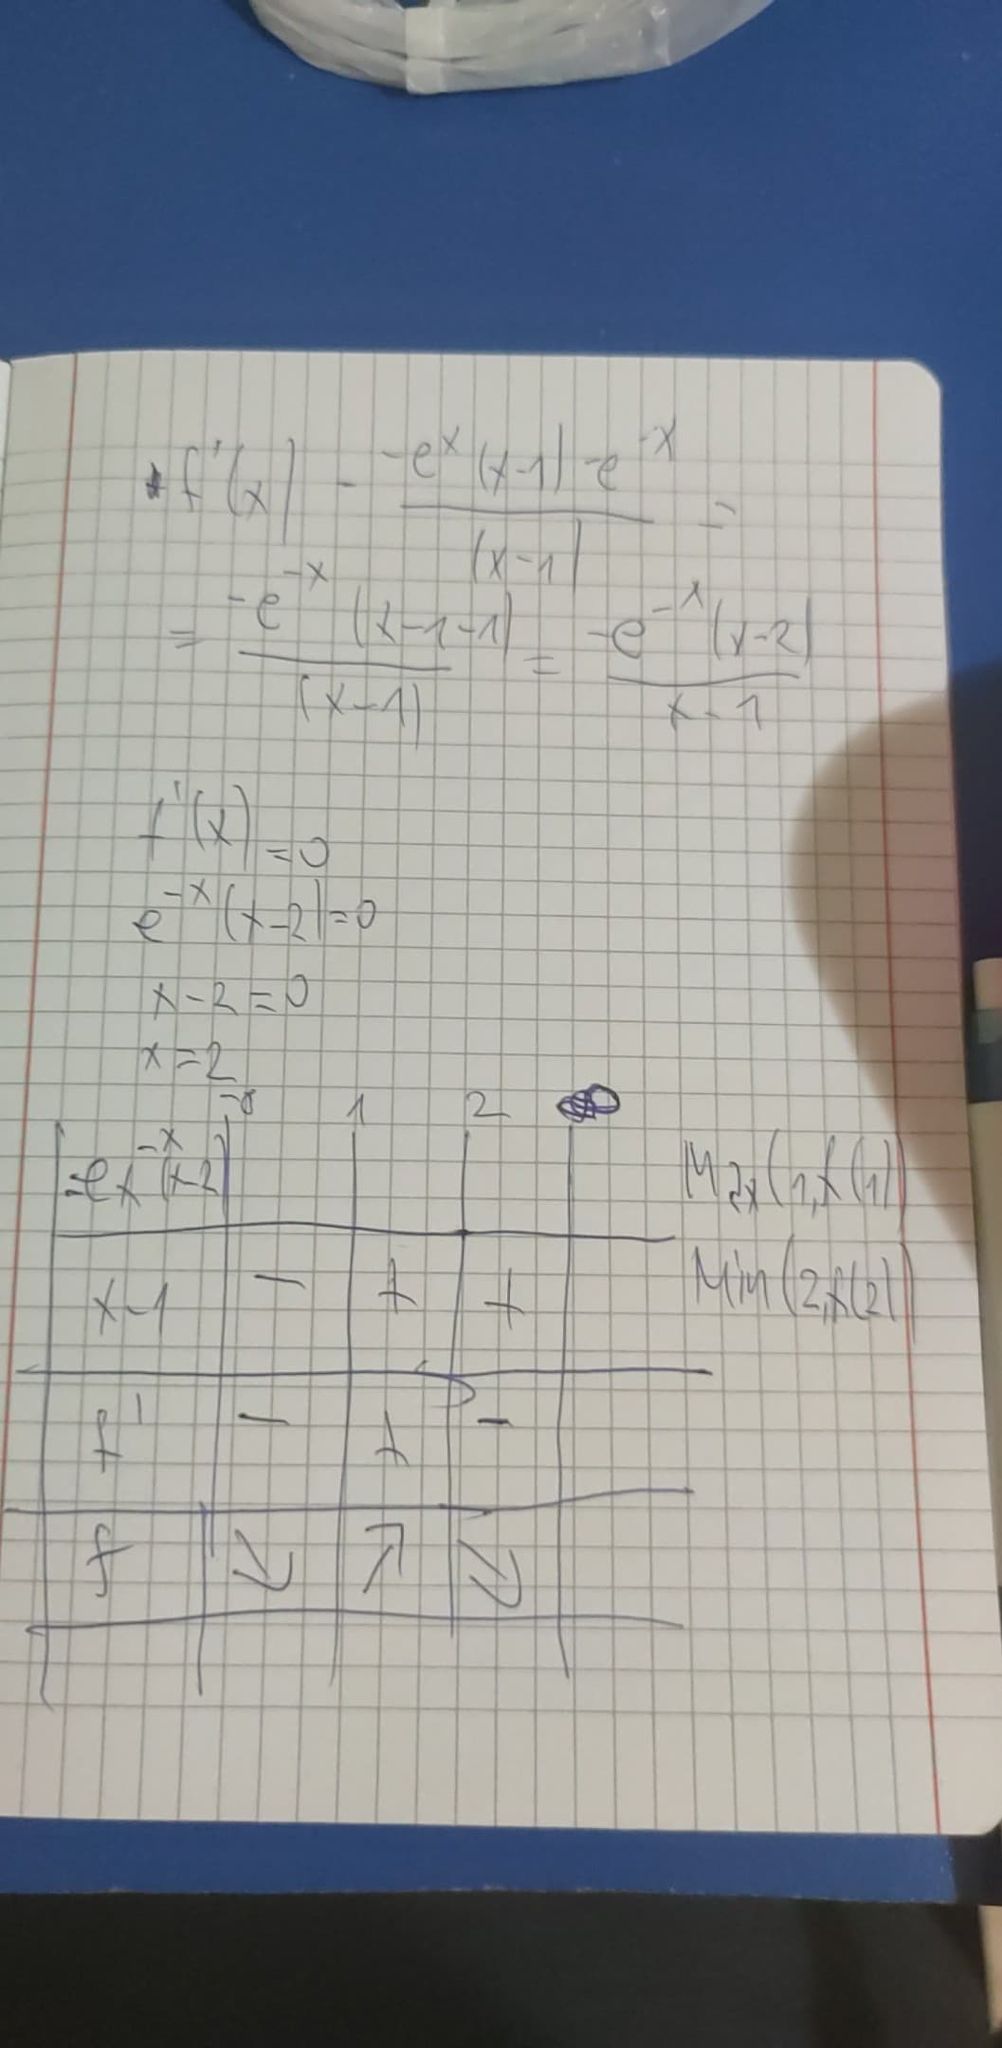 f'(x) = -eˣ(x-1)-e⁻ˣ / (x-1) =
= -e⁻ˣ (x-1-1) / (x-1) = -e⁻ˣ(x-2) / x-1
f'(x) = 0
e⁻ˣ(x-2)=0
x-2=0
x=2
1 2
x-2 Max(1,f(1))
x-1 - + + Min(2,f(2))
f' - + -
f ↘ ↗ ↘